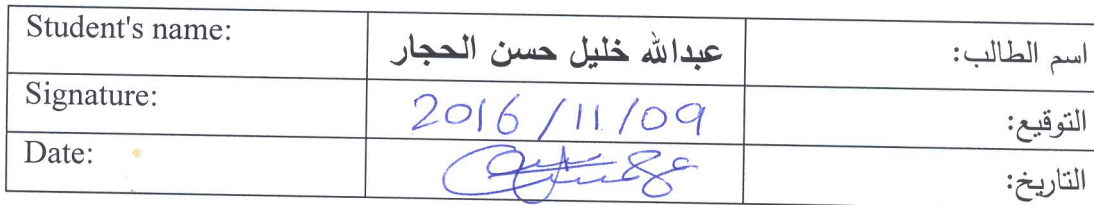 Student's name: عبدالله خليل حسن الحجار اسم الطالب:
Signature: 2016/11/09 التوقيع:
Date: التاريخ: